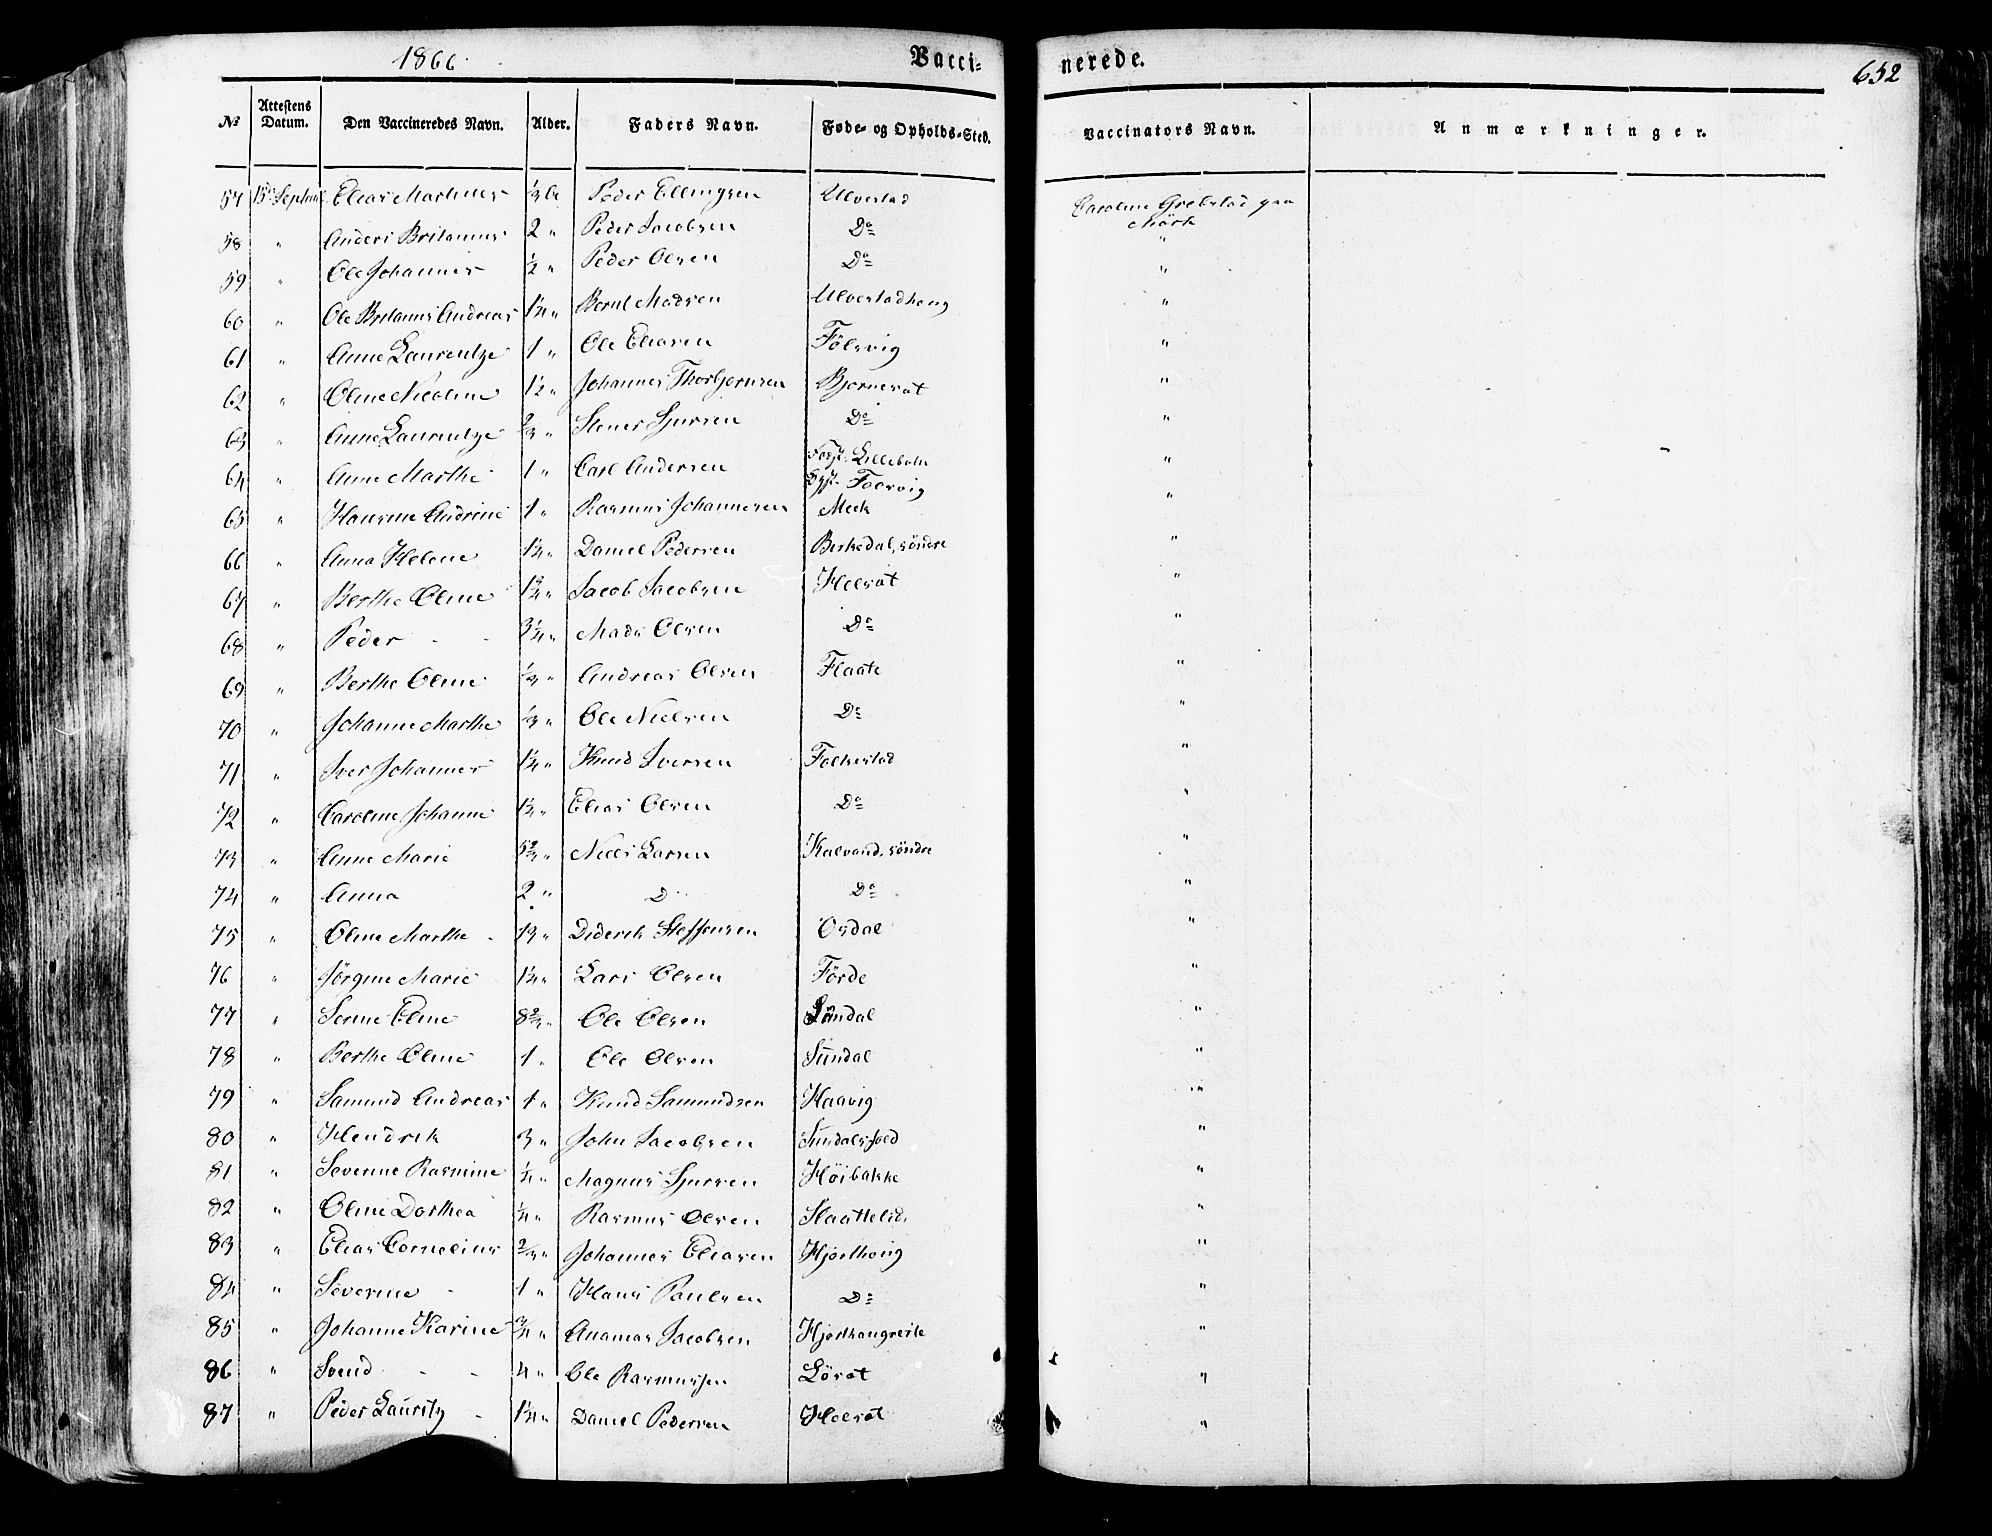 1866.
Vacci-
nerede.
652
No
Attestens Datum.
Den Vaccineredes Navn.
Alder.
Faders Navn.
Føde- og Opholds-Sted.
Vaccinators Navn.
Anmærkninger.
57 15de Septembr Elias Martinus 1/3 Peder Ellingsen Ulvestad Caroline Grebstad paa Mörk
58 " Anders Britanus 2 " Peder Jacobsen Do "
59 " Ole Johannes 1/2 " Peder Olsen Do "
60 " Ole Britanus Andreas 1 1/4 " Bernt Madsen Ulvestadhoug "
61 " Anne Laurentze 1 " Ole Eliasen Fölsvig "
62 " Oline Nicoline 1 1/2 " Johannes Thorbjørnsen Bjørneset "
63 " Anne Laurentze 2/3 " Stener Sjursen Do "
64 " Anne Marthe 1 " Carl Andersen Lillebole Folsvig "
65 " Hansine Andrine 1 " Rasmus Johannesen Meek "
66 " Anna Helene 1 1/4 " Daniel Pedersen Berkedal, söndre "
67 " Berthe Oline 1 2/4 " Jacob Jacobsen Helset "
68 " Peder - - 3 1/4 " Mads Olsen Do "
69 " Berthe Oline 1/3 " Andreas Olsen Flaate "
70 " Johanne Marthe 1/3 " Ole Nielsen Do "
71 " Iver Johannes 1 1/4 " Knud Iversen Folkestad "
72 " Caroline Johanne 1 1/4 " Elias Olsen Do "
73 " Anne Marie 5 2/3 " Niels Larsen Kalvand, söndre "
74 " Anna 2 " D Do "
75 " Oline Marthe - 19 " Diderik Steffensen Osdal "
76 " Jörgine Marie 1 1/4 " Lars Olsen Förde "
77 " Serine Eline 8 2/3 " Ole Olsen Sündal "
78 " Berthe Oline 1 " Ole Olsen Sündal "
79 " Samund Andreas 1 " Knud Samundsen Haavig "
80 " Hendrik 3 " John Jacobsen "
81 " Severine Rasmine 1/4 " Magnus Sjursen Höibakke "
82 " Oline Dorthea 1/4 " Rasmus Olsen Slaattelid. "
83 " Elias Cornelius 2/3 " Johannes Eliasen Hjorthoug "
84 " Severine - 1 " Hans Paulsen Do "
85 " Johanne Karine 3/4 " Jacobsen Hjorthougreite "
86 " Svend - - 4 " Ole Rasmussen Löset "
87 " Peder Lauritz - 1 1/4 " Daniel Pedersen Helset "